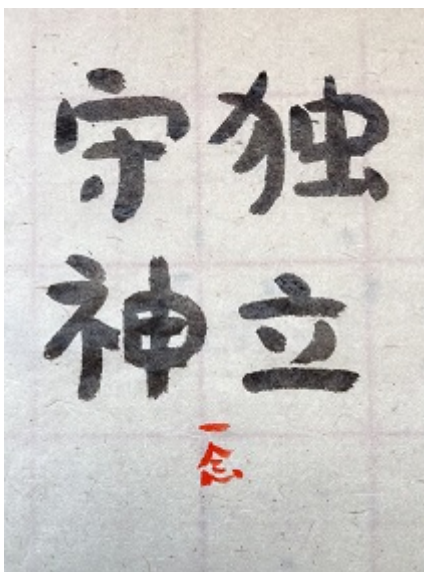 独立
守神
一念